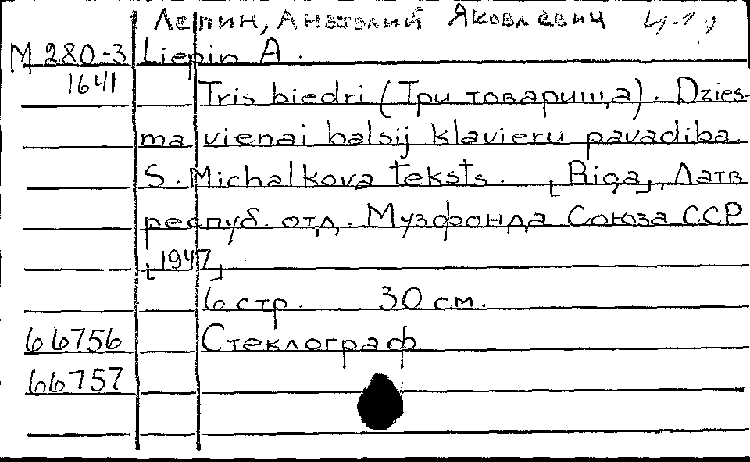 Лепин, Анатолий Яковлевич
М 280-3 Liepin A.
1641
Tris biedri (Три товарища). Dzies-
ma vienai balsij klavieru pavadiba.
S. Michalkova teksts. [Riga], Латв.
респуб. отд. Музфонда Союза ССР
[1947]
6 стр. 30 см.
66756 Стеклограф
66757